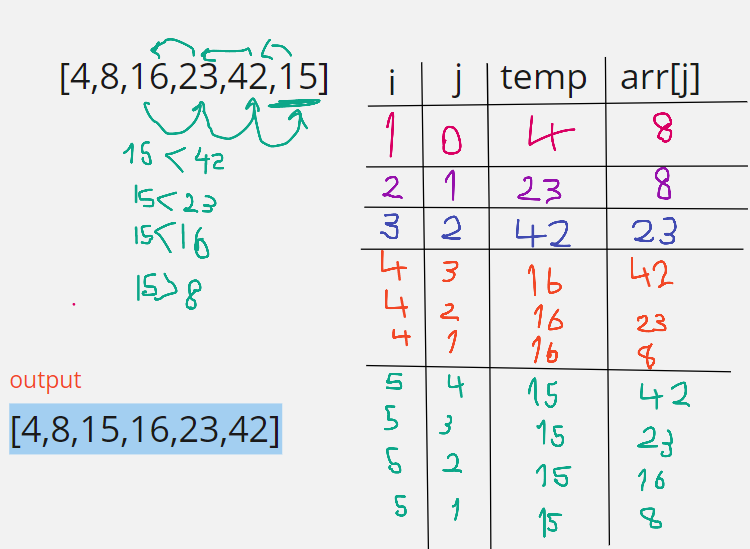 [4,8,16,23,42,15]
15 < 42
15 < 23
15 < 16
15 > 8
output
[4,8,15,16,23,42]
i j temp arr[j]
1 0 4 8
2 1 23 8
3 2 42 23
4 3 16 42
4 2 16 23
4 1 16 8
5 4 15 42
5 3 15 23
5 2 15 16
5 1 15 8